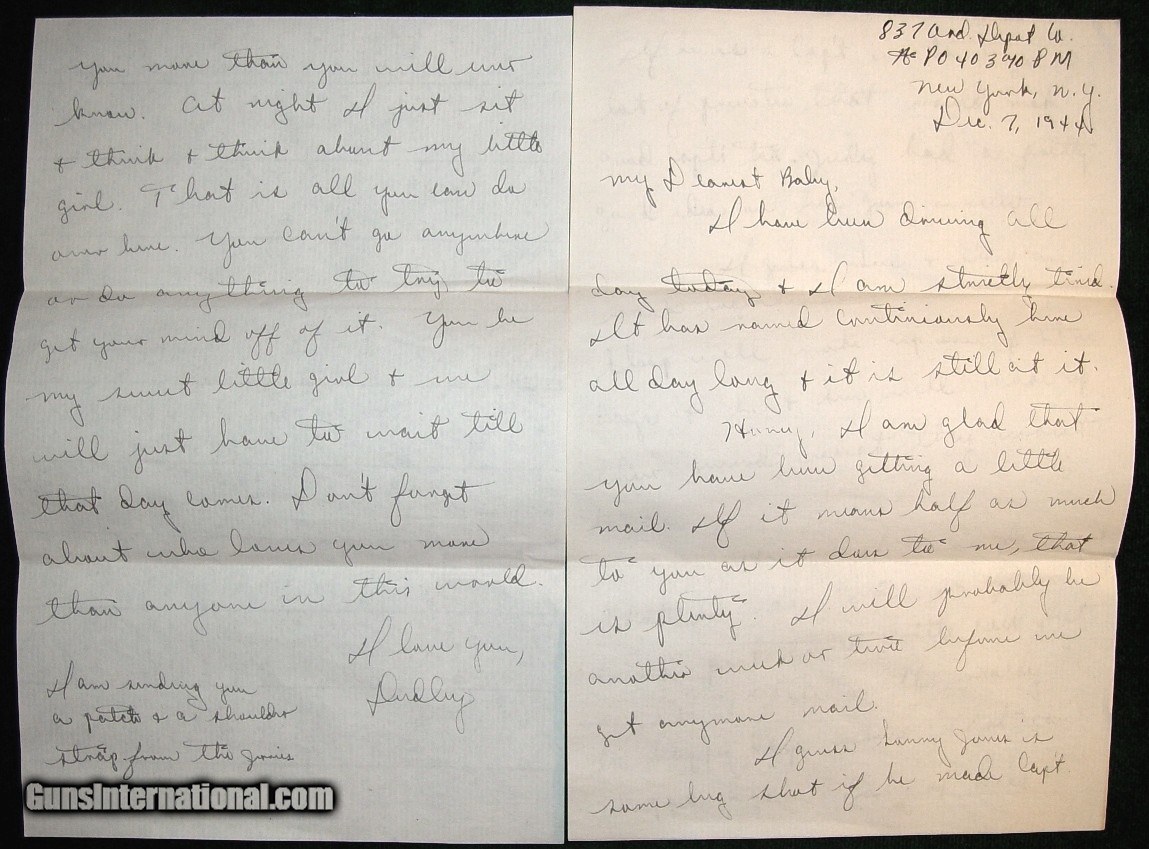 837 Ord. Depot Co.
APO 403 % PM
New York, N.Y.
Dec. 7, 1944
My Dearest Baby,
I have been driving all
day today & I am strictly tired.
It has rained continiously here
all day long & it is still at it.
Honey, I am glad that
you have been getting a little
mail. If it means half as much
to you as it does to me, that
is plenty. I will probably be
another week or two before we
get anymore mail.
I guess Sonny Jones is
some big shot if he made Capt.
you more than you will ever
know. At night I just sit
& think & think about my little
girl. That is all you can do
over here. You can't go anywhere
or do anything to try to
get your mind off of it. You be
my sweet little girl & we
will just have to wait till
that day comes. Don't forget
about who loves you more
than anyone in this world.
I love you,
Dudley
I am sending you
a patch & a shoulder
strap from the Jerries
GunsInternational.com